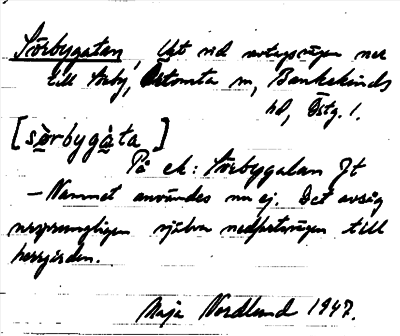 Sörbygatan, Ukt vid avtagsvägen ner
till Sörby, Östomta m, Bankekinds
hd, Östg. l.
[sòrbygàta ]
På ek: Sörbygatan Jt
– Namnet användes nu ej. Det avsåg
ursprungligen själva nedfartsvägen till
herrgården.
Maja Nordlund 1947.